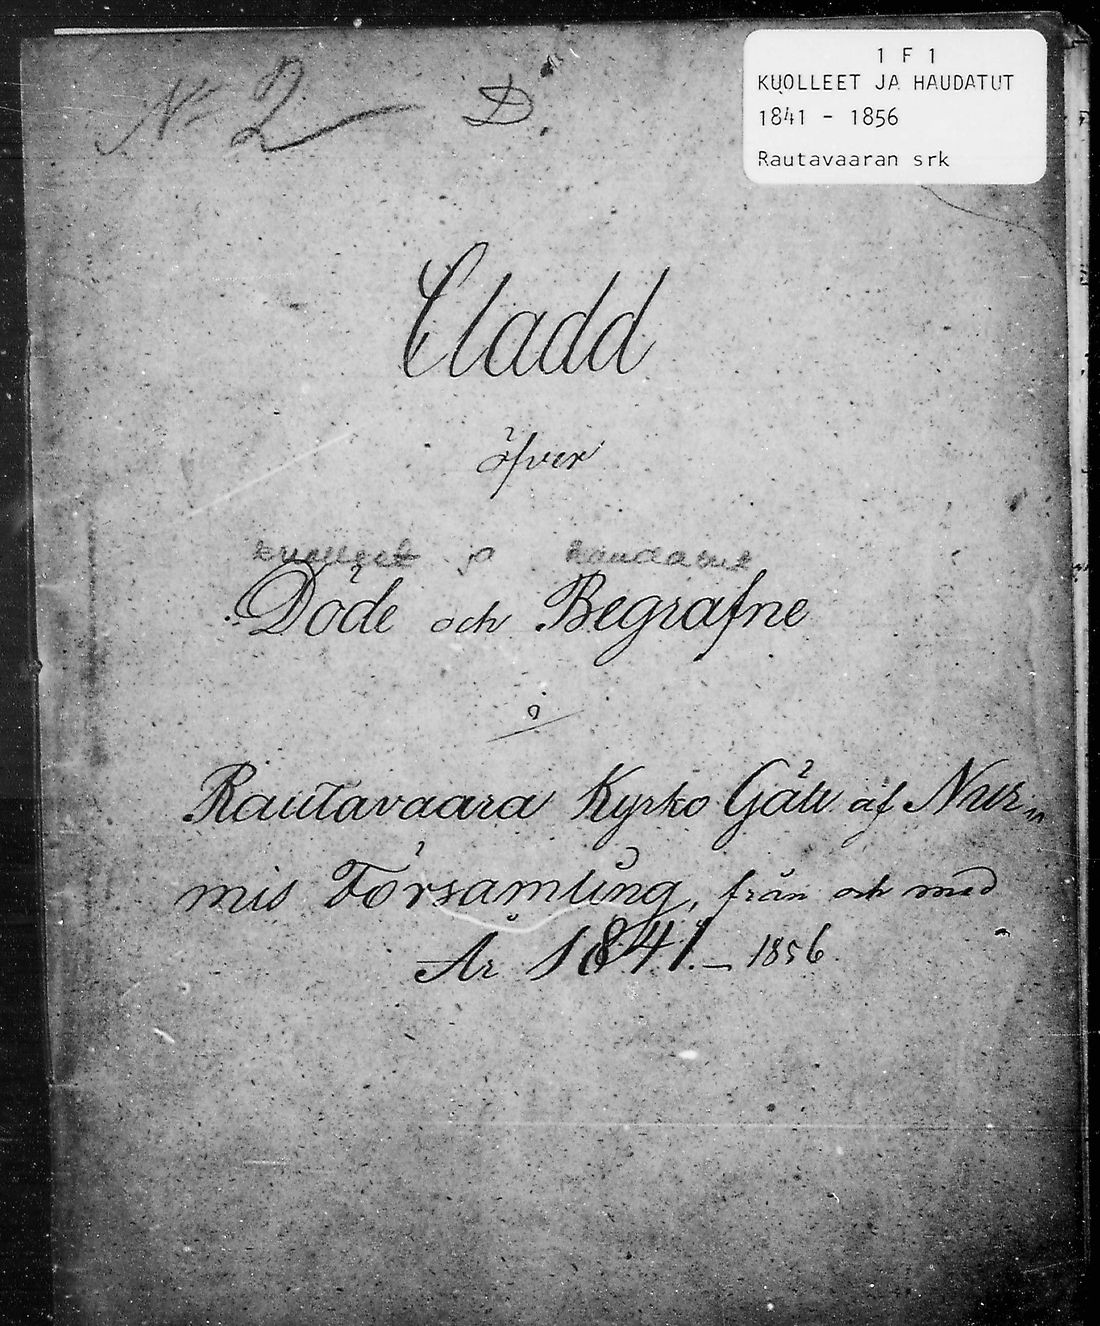 N: 2 D.
1 F 1
KUOLLEET JA HAUDATUT
1841 - 1856
Rautavaaran srk
Cladd
öfver
kuolleet ja haudatut
Döde och Begrafne
i
Rautavaara Kyrko Gäll af Nur„
mis Församling, från och med
År 1841._ 1856.